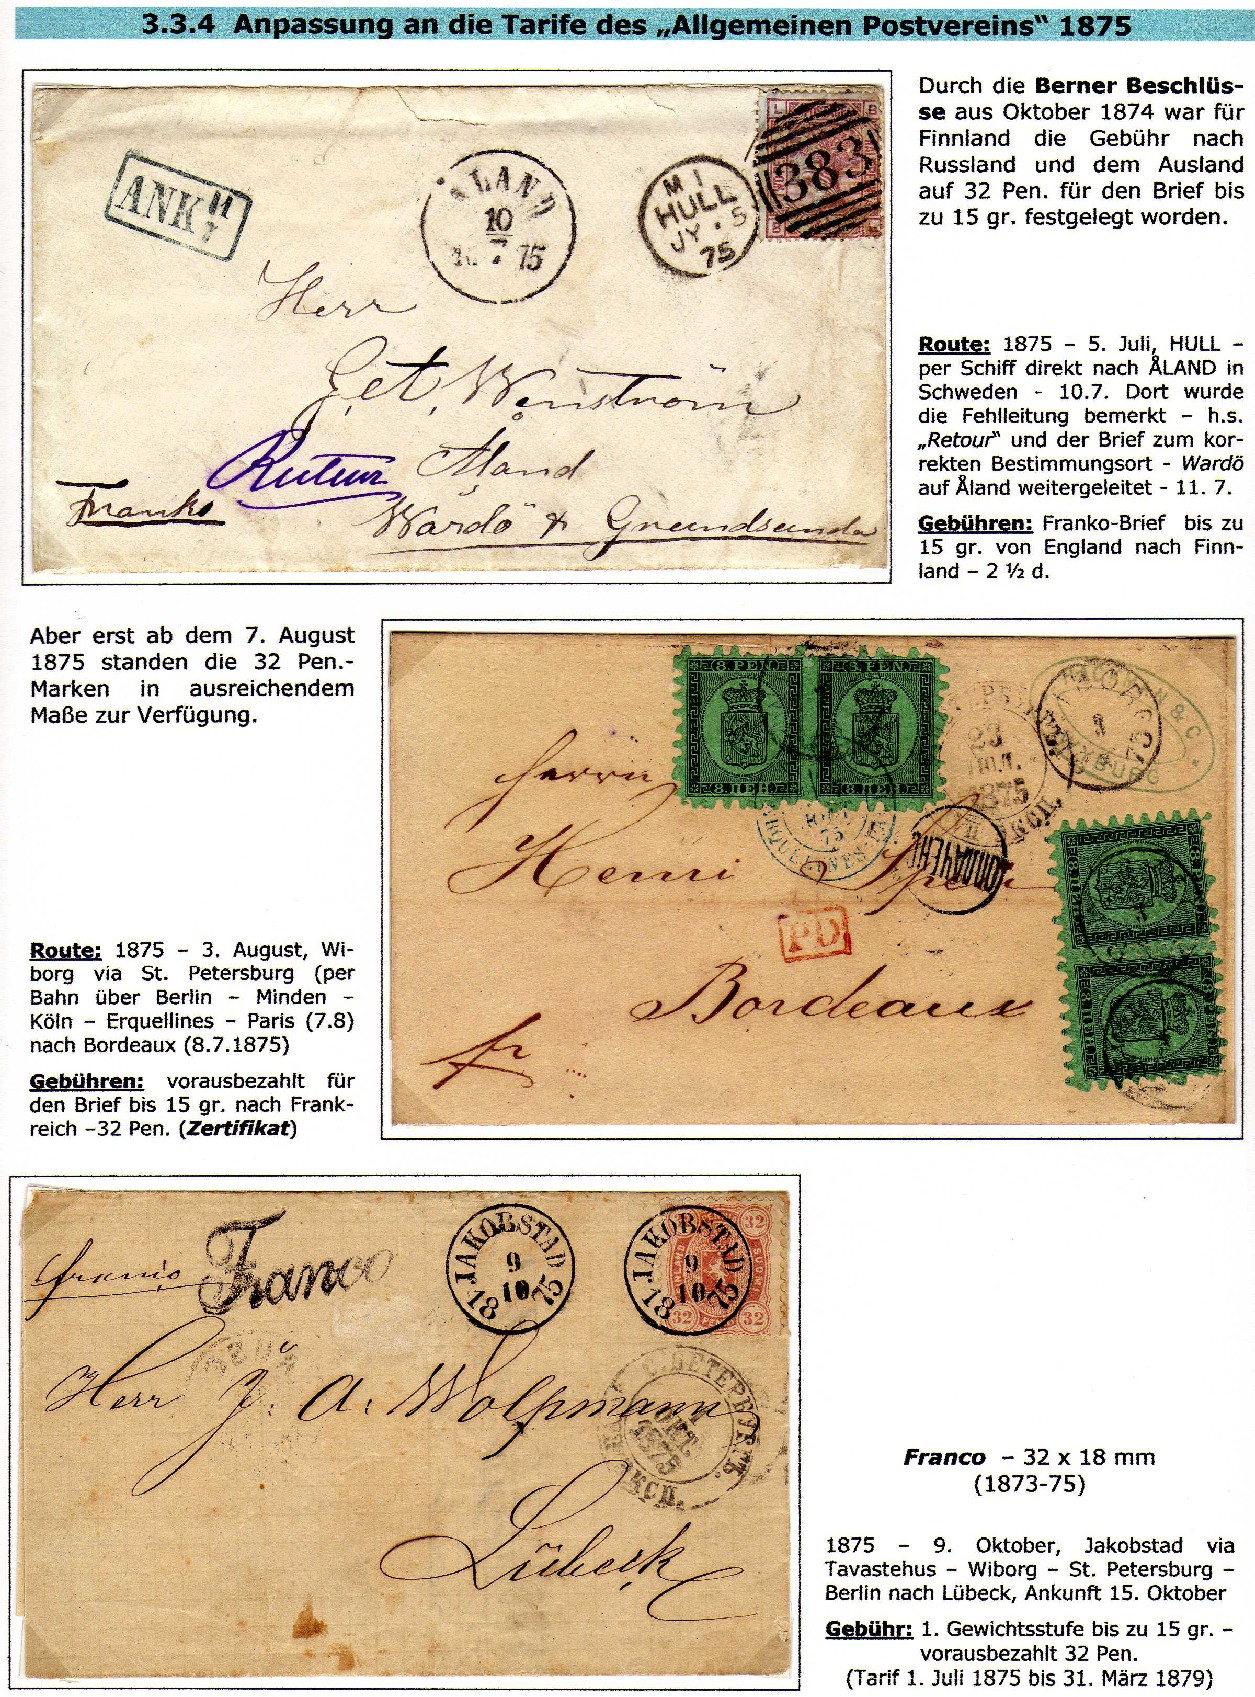 3.3.4 Anpassung an die Tarife des „Allgemeinen Postvereins“ 1875
Durch die Berner Beschlüs-
se aus Oktober 1874 war für
Finnland die Gebühr nach
Russland und dem Ausland
auf 32 Pen. für den Brief bis
zu 15 gr. festgelegt worden.
ANK 11/7
ÅLAND
10
7
75
M1
HULL
JY 5
75
383
L B
Herr
Åland
Retur
Franko
Wardö & Grundsunda
Route: 1875 – 5. Juli, HULL –
per Schiff direkt nach ÅLAND in
Schweden - 10.7. Dort wurde
die Fehlleitung bemerkt – h.s.
„Retour“ und der Brief zum kor-
rekten Bestimmungsort - Wardö
auf Åland weitergeleitet - 11. 7.
Gebühren: Franko-Brief bis zu
15 gr. von England nach Finn-
land – 2 ½ d.
Aber erst ab dem 7. August
1875 standen die 32 Pen.-
Marken in ausreichendem
Maße zur Verfügung.
8.PEN. 8.PEN.
8.ПЕН. 8.ПЕН.
1875
75
Herrn
Henri
PD
Bordeaux
fr
Route: 1875 – 3. August, Wi-
borg via St. Petersburg (per
Bahn über Berlin – Minden –
Köln – Erquellines – Paris (7.8)
nach Bordeaux (8.7.1875)
Gebühren: vorausbezahlt für
den Brief bis 15 gr. nach Frank-
reich –32 Pen. (Zertifikat)
Franco
JAKOBSTAD
9
10
18 75
JAKOBSTAD
9
10
18 75
32
32 32
С.ПЕТЕРБУРГ
ОКТ.
1875
Herr J. A. Wolpmann
Lübeck
Franco – 32 x 18 mm
(1873-75)
1875 – 9. Oktober, Jakobstad via
Tavastehus – Wiborg – St. Petersburg –
Berlin nach Lübeck, Ankunft 15. Oktober
Gebühr: 1. Gewichtsstufe bis zu 15 gr. –
vorausbezahlt 32 Pen.
(Tarif 1. Juli 1875 bis 31. März 1879)